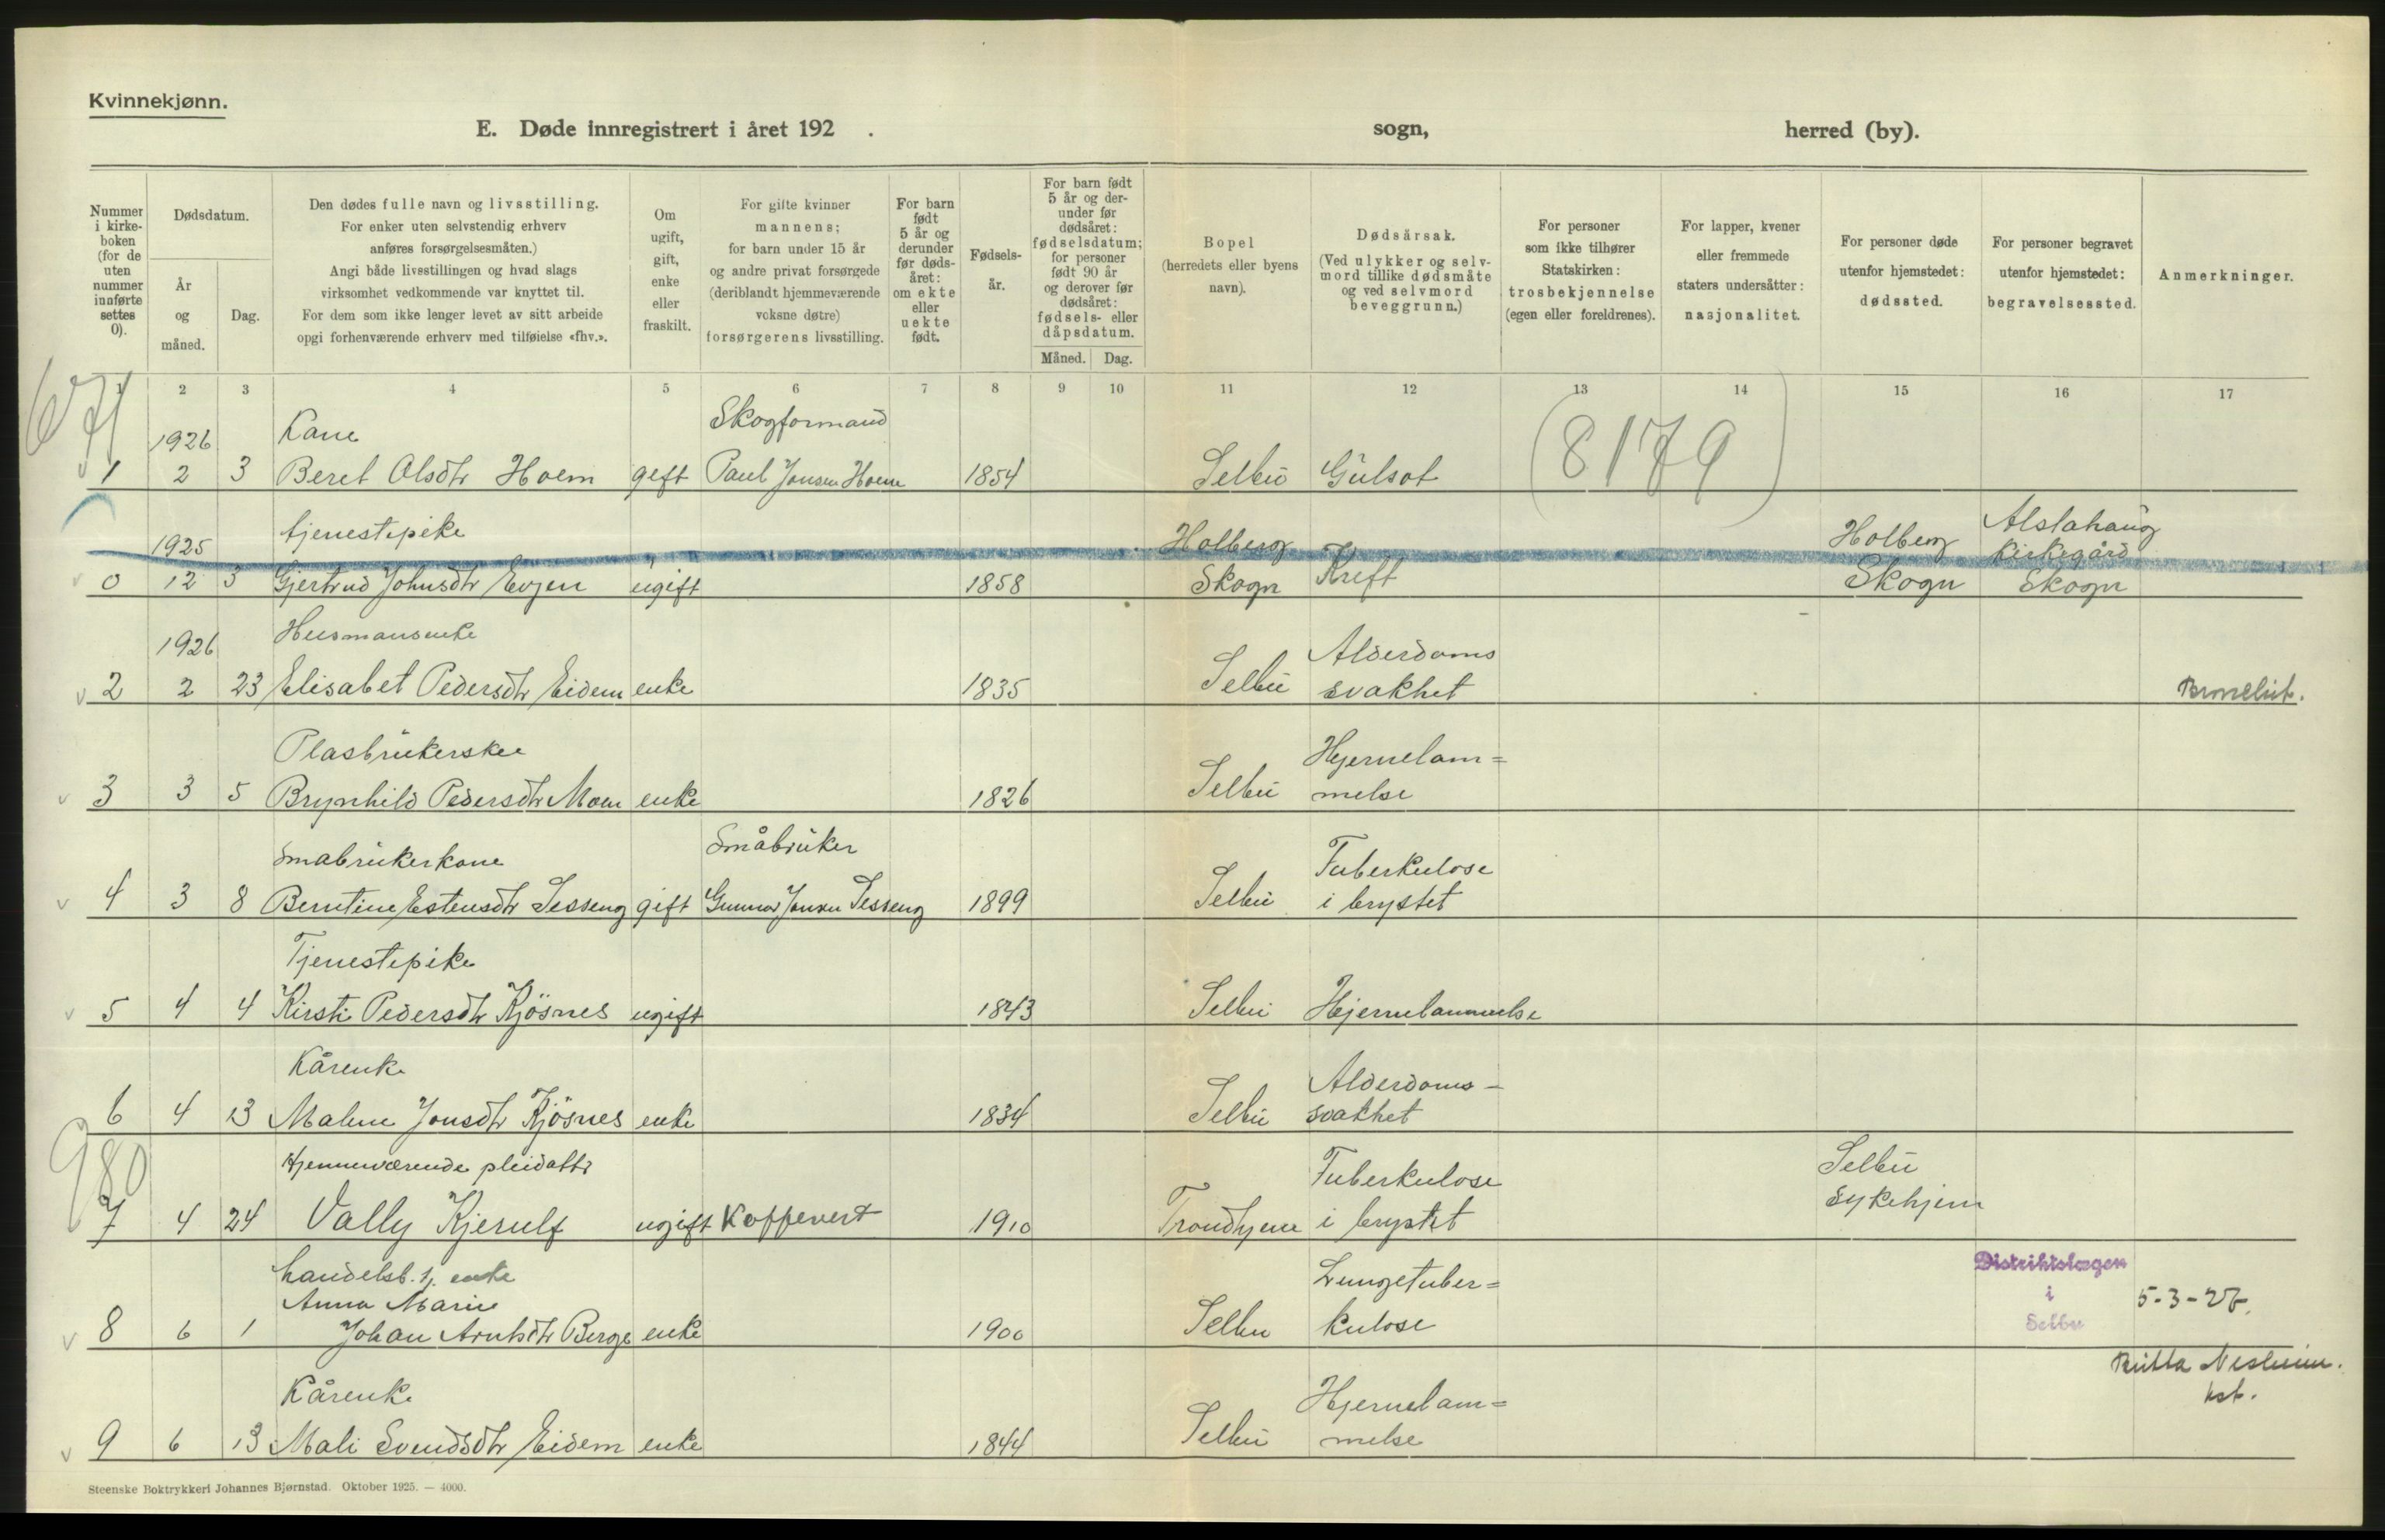 Kvinnekjønn.
E. Døde innregistrert i året 192 . sogn, herred (by).
Nummer i kirke-boken (for de uten nummer innførte settes 0).
Dødsdatum.
År og måned.
Dag.
Den dødes fulle navn og livsstilling.
For enker uten selvstendig erhverv
anføres forsørgelsesmåten.)
Angi både livsstillingen og hvad slags
virksomhet vedkommende var knyttet til.
For dem som ikke lenger levet av sitt arbeide
opgi forhenværende erhverv med tilføielse «fhv.».
Om ugift, gift, enke eller fraskilt.
For gifte kvinner
mannens;
for barn under 15 år
og andre privat forsørgede
(deriblandt hjemmeværende
voksne døtre)
forsørgerens livsstilling.
For barn født 5 år og derunder før døds-året: om ekte eller uekte født.
Fødsels-år.
For barn født 5 år og der-under før dødsåret: fødselsdatum; for personer født 90 år og derover før dødsåret: fødsels- eller dåpsdatum.
Måned. Dag.
Bopel
(herredets eller byens
navn).
Dødsårsak.
(Ved ulykker og selv-
mord tillike dødsmåte
og ved selvmord
beveggrunn.)
For personer
som ikke tilhører
Statskirken:
trosbekjennelse
(egen eller foreldrenes).
For lapper, kvener
eller fremmede
staters undersåtter:
nasjonalitet.
For personer døde
utenfor hjemstedet:
dødssted.
For personer begravet
utenfor hjemstedet:
begravelsessted.
Anmerkninger.
1 2 3 4 5 6 7 8 9 10 11 12 13 14 15 16 17
1926 Kone Skogformand
1 2 3 Beret Olsdtr Hoem gift Paul Jonsen Hoem 1854 Selbu Gulsot (8179)
1925 tjenestepike Holberg Holberg Alstahaug Kirkegård
0 12 3 Gjertrud Johnsdtr Evjen ugift 1858 Skogn Kreft Skogn Skogn
1926 Husmansenke Alderdoms
2 2 23 Elisabet Pedersdtr Eidem enke 1835 Selbu svakhet
Plasbrukerske Hjernelam=
3 3 5 Brynhild Pedersdtr Moen enke 1826 Selbu melse
Småbrukerkone Småbruker Tuberkulose
4 3 8 Berntine Estensdtr Sesseng gift Gunnar Jonsen Sesseng 1899 Selbu i brystet
Tjenestepike
5 4 4 Kirsti Pedersdtr Kjösnes ugift 1843 Selbu Hjernelammelse
Kårenke Alderdoms-
6 4 13 Malene Jonsdtr Kjösnes enke 1834 Selbu svakhet
980
Hjemmeværende pleidattr Tuberkulose Selbu
7 4 24 Vally Kjerulf ugift Koffevert 1910 Trondhjem i brystet sykehjem
handelsb. enke
Anna Marie Lungetuber=
8 6 1 Johan Arntsdtr Berge enke 1900 Selbu kulose
Distriktslægen
i
Selbu
5-3-27.
Kårenke Hjernelam=
9 6 13 Mali Svendsdtr Eidem enke 1844 Selbu melse
Steenske Boktrykkeri Johannes Bjørnstad. Oktober 1925. — 4000.